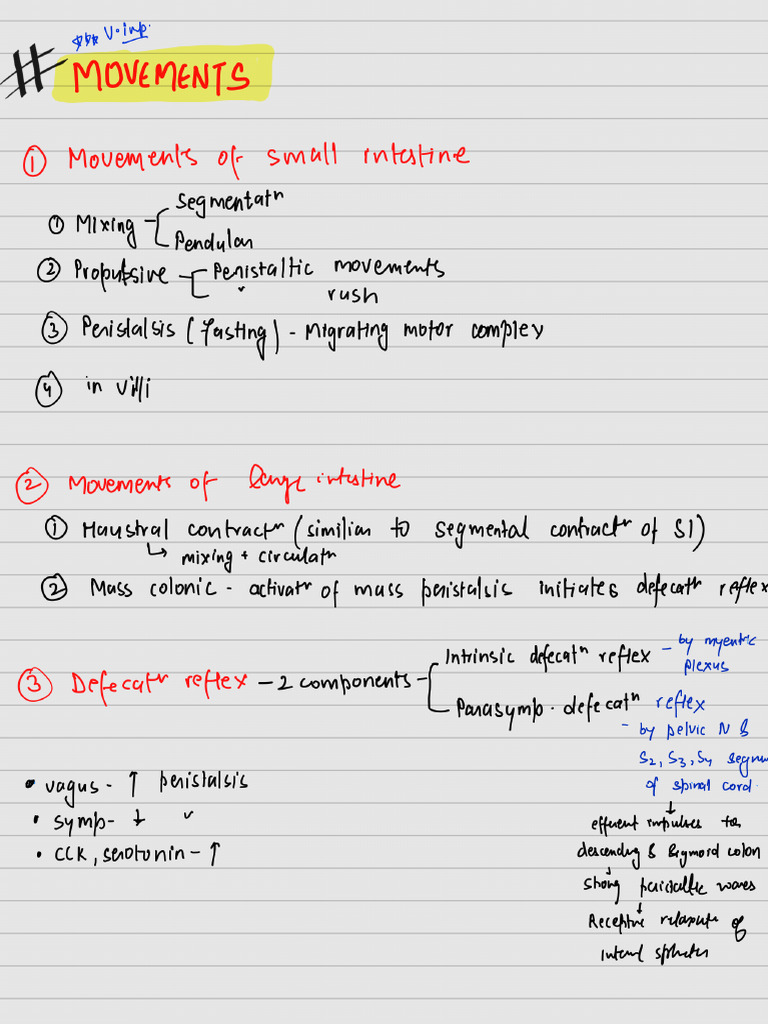 *** V. imp.
# MOVEMENTS
① Movements of small intestine
① Mixing - Segmentatⁿ
Pendular
② Propulsive - Peristaltic movements
" rush
③ Peristalsis (fasting) - Migrating motor complex
④ in villi
② Movements of large intestine
① Haustral contractⁿ (similiar to segmental contractⁿ of SI)
↳ mixing + circulatⁿ
② Mass colonic - activatⁿ of mass peristalsis initiates defecatⁿ reflex
③ Defecatⁿ reflex - 2 components - Intrinsic defecatⁿ reflex - by myentric plexus
Parasymp. defecatⁿ reflex
- by pelvic N &
S2, S3, S4 segm
of spinal cord.
↓
efferent impulses to
descending & sigmoid colon
↓
strong peristaltic waves
↓
Receptive relaxatⁿ of
internal sphincter
• vagus - ↑ peristalsis
• symp - ↓ "
• CCK, serotonin - ↑